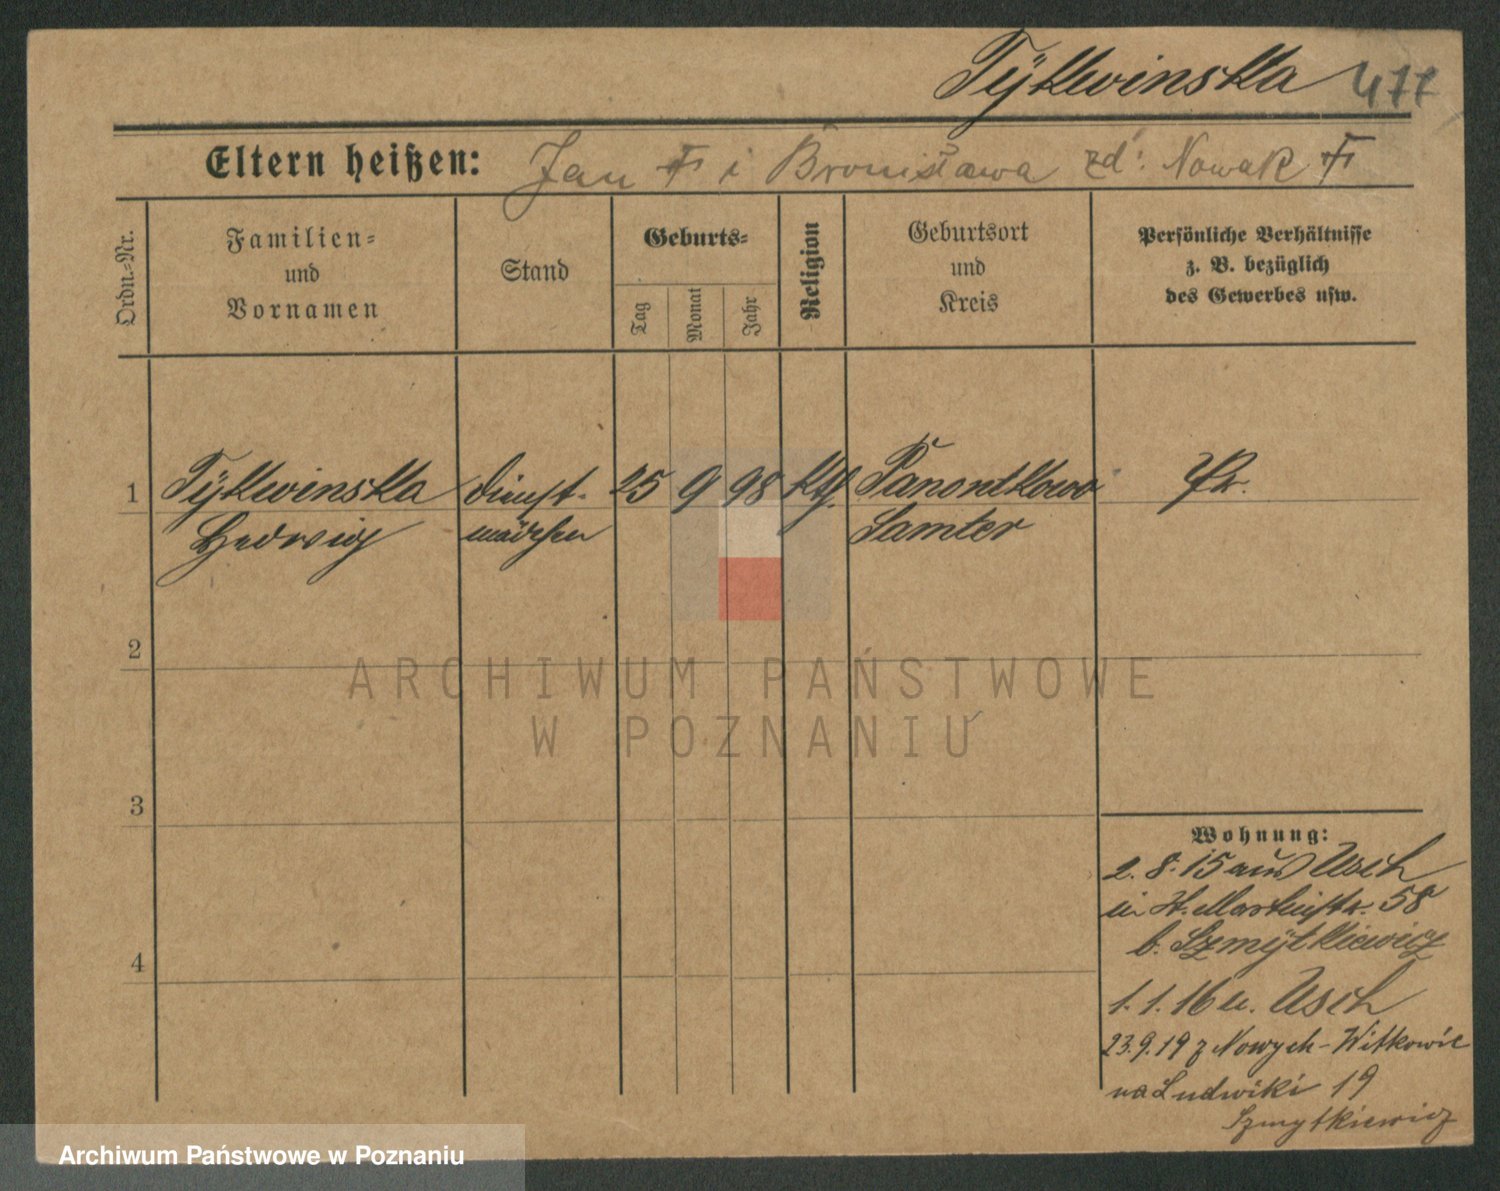 Tÿklwinska 477
Eltern heißen: Jan i Bronisława zd: Nowak
Ordn.-Nr.
Familien-
und
Vornamen
Stand
Geburts-
Tag
Monat
Jahr
Religion
Geburtsort
und
Kreis
Persönliche Verhältnisse
z. B. bezüglich
des Gewerbes usw.
1 Tÿklwinska Dienst- 25 9 98 kth. Panontkowo Pr.
Hedwig mädchen Samter
2
3
4
Wohnung:
2. 8. 15 aus Usch
in St. Martinstr. 58
b. Szmÿtkiewicz
1. 1. 16 n. Usch
23.9.19 z Nowych-Witkowic
na Ludwiki 19
Szmytkiewicz
ARCHIWUM PAŃSTWOWE
W POZNANIU
Archiwum Państwowe w Poznaniu